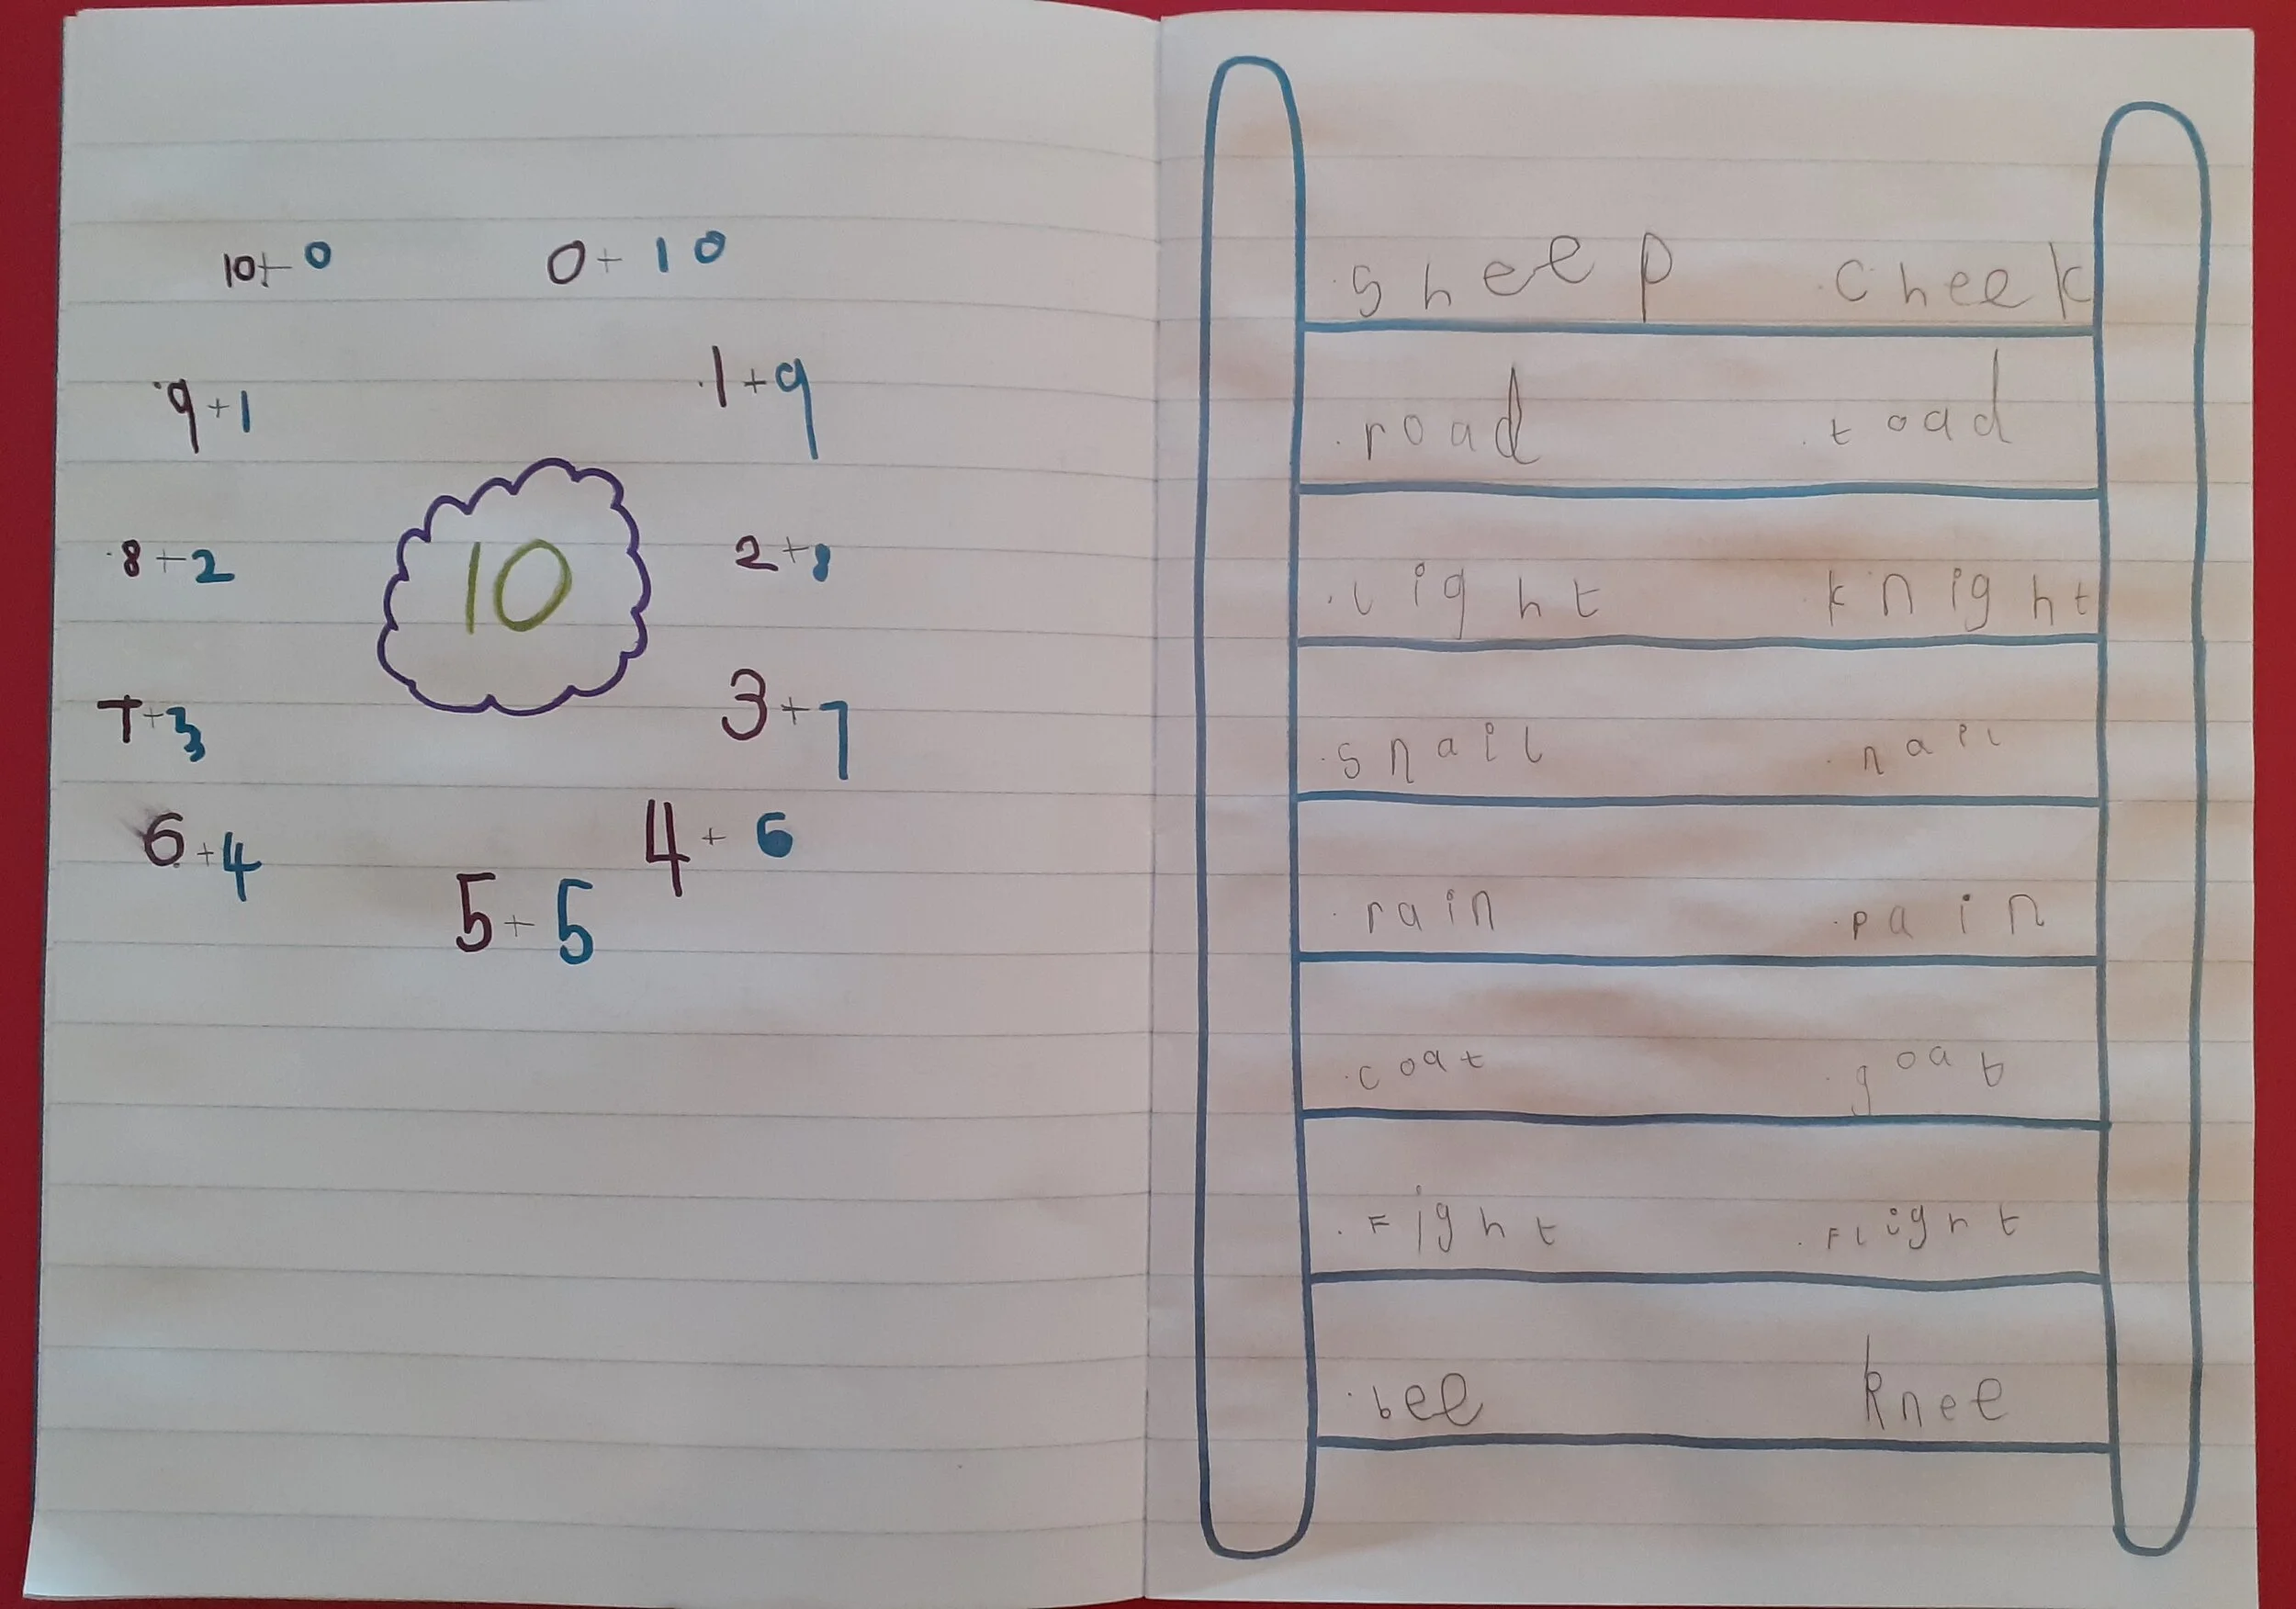 10+0 0+10
9+1 1+9
8+2 10 2+8
7+3 3+7
6+4 4+6
5+5
sheep cheek
road toad
light knight
snail nail
rain pain
coat goat
Fight Flight
bee knee